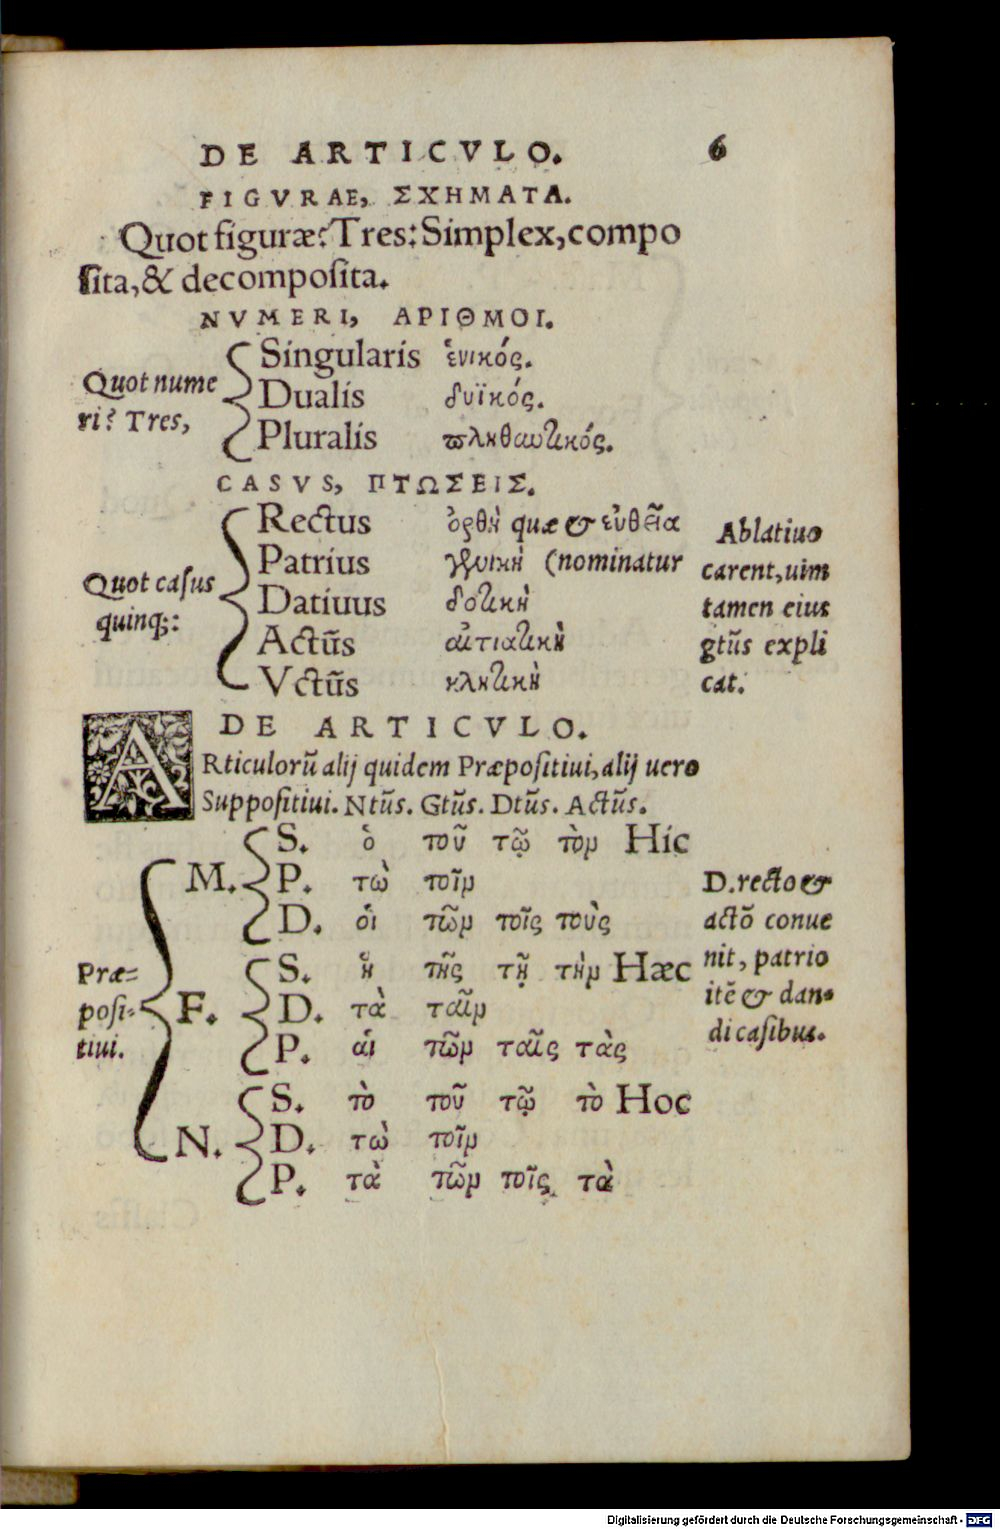 DE ARTICVLO. 6
FIGVRAE, ΣΧΗΜΑΤΑ.
Quot figuræ? Tres: Simplex, compo
sita, & decomposita.
NVMERI, ΑΡΙΘΜΟΙ.
Quot nume
ri? Tres,
Singularis ἑνικός.
Dualis δυϊκός.
Pluralis πληθωτικός.
CASVS, ΠΤΩΣΕΙΣ.
Quot casus
quinq;:
Rectus ὀρθὴ quæ & εὐθεῖα
Patrius γενικὴ (nominatur
Datiuus δοτικὴ
Actũs αἰτιατικὴ
Vctũs κλητικὴ
Ablatiuo
carent, uim
tamen eius
gtũs expli
cat.
DE ARTICVLO.
ARticulorũ alij quidem Præpositiui, alij uero
Suppositiui. Ntũs. Gtũs. Dtũs. Actũs.
Præ-
posi-
tiui.
M.
S. ὁ τοῦ τῷ τὸν Hic
P. τὼ τοῖν
D. οἱ τῶν τοῖς τοὺς
F.
S. ἡ τῆς τῇ τὴν Hæc
D. τὰ ταῖν
P. αἱ τῶν ταῖς τὰς
N.
S. τὸ τοῦ τῷ τὸ Hoc
D. τὼ τοῖν
P. τὰ τῶν τοῖς τὰ
D. recto &
actõ conue
nit, patrio
itẽ & dan-
di casibus.
Digitalisierung gefördert durch die Deutsche Forschungsgemeinschaft - DFG